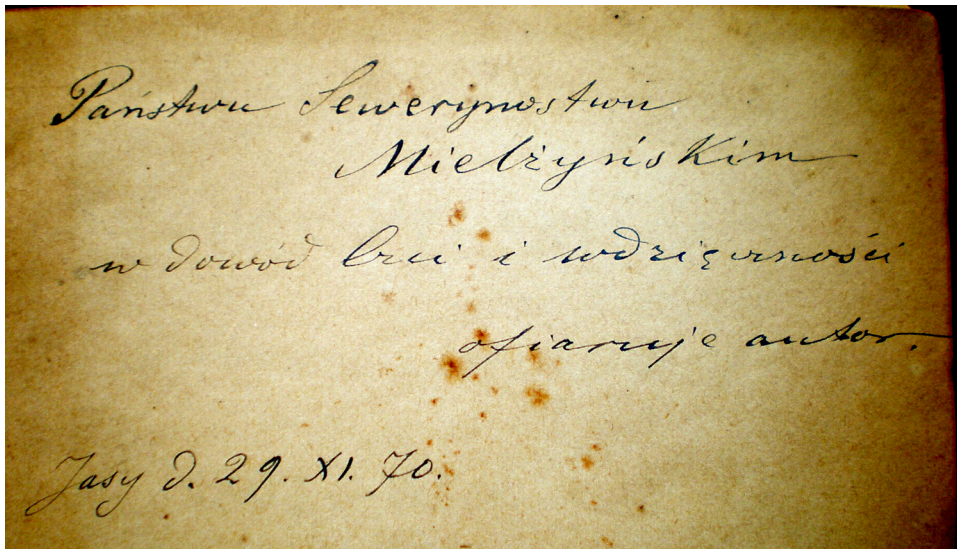 Państwu Sewerynostwu
Mielżyńskim
w dowód czci i wdzięczności
ofiaruje autor.
Jasy d. 29. XI. 70.